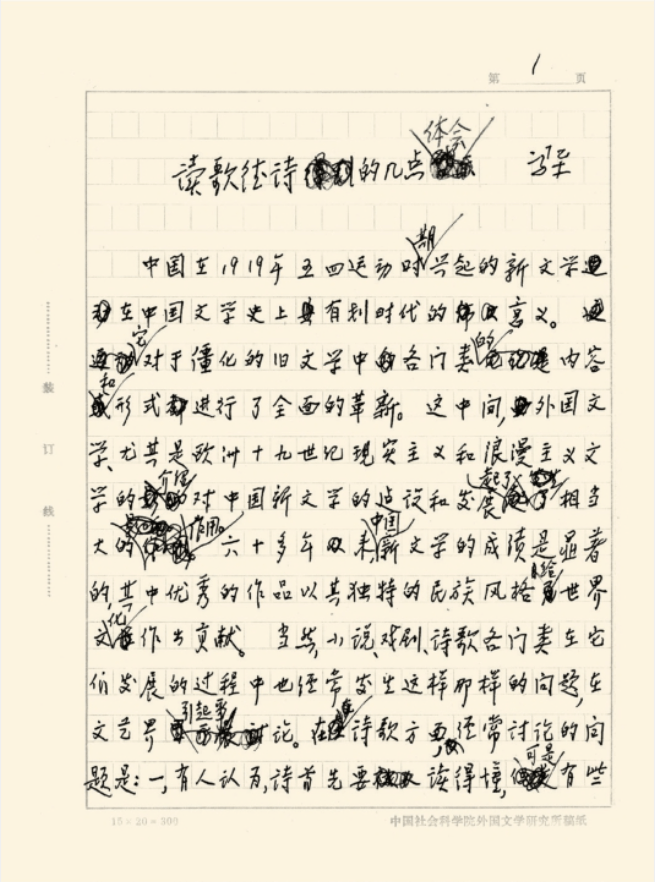 第 1 页
体会
读歌德诗的几点 冯至
期
中国在1919年五四运动时兴起的新文学
在中国文学史上具有划时代的意义。
它 的
对于僵化的旧文学中各门类内容
和
形式进行了全面的革新。这中间,外国文
学、尤其是欧洲十九世纪现实主义和浪漫主义文
介绍 起了
学的对中国新文学的建设和发展相当
作用。 中国
大的六十多年以来,新文学的成绩是显著
给
的,其中优秀的作品以其独特的民族风格世界
化
文作出贡献。当然,小说、戏剧、诗歌各门类在它
们发展的过程中也经常发生这样那样的问题,在
引起
文艺界讨论。在诗歌方面,经常讨论的问
可是
题是:一,有人认为,诗首先要读得懂,有些
装
订
线
15×20=300
中国社会科学院外国文学研究所稿纸